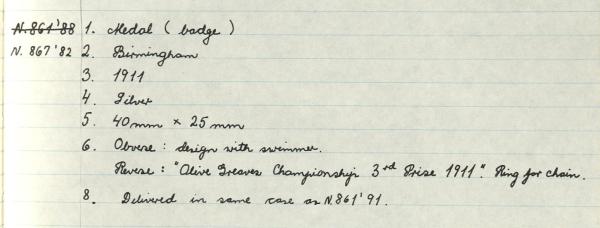 N.861'88 1. Medal ( badge )
N. 867'82 2. Birmingham
3. 1911
4. Silver
5. 40mm × 25mm
6. Obverse : design with swimmer.
Reverse : "Olive Greaves Championship 3rd Prize 1911". Ring for chain.
8. Delivered in same case as N.861'91.